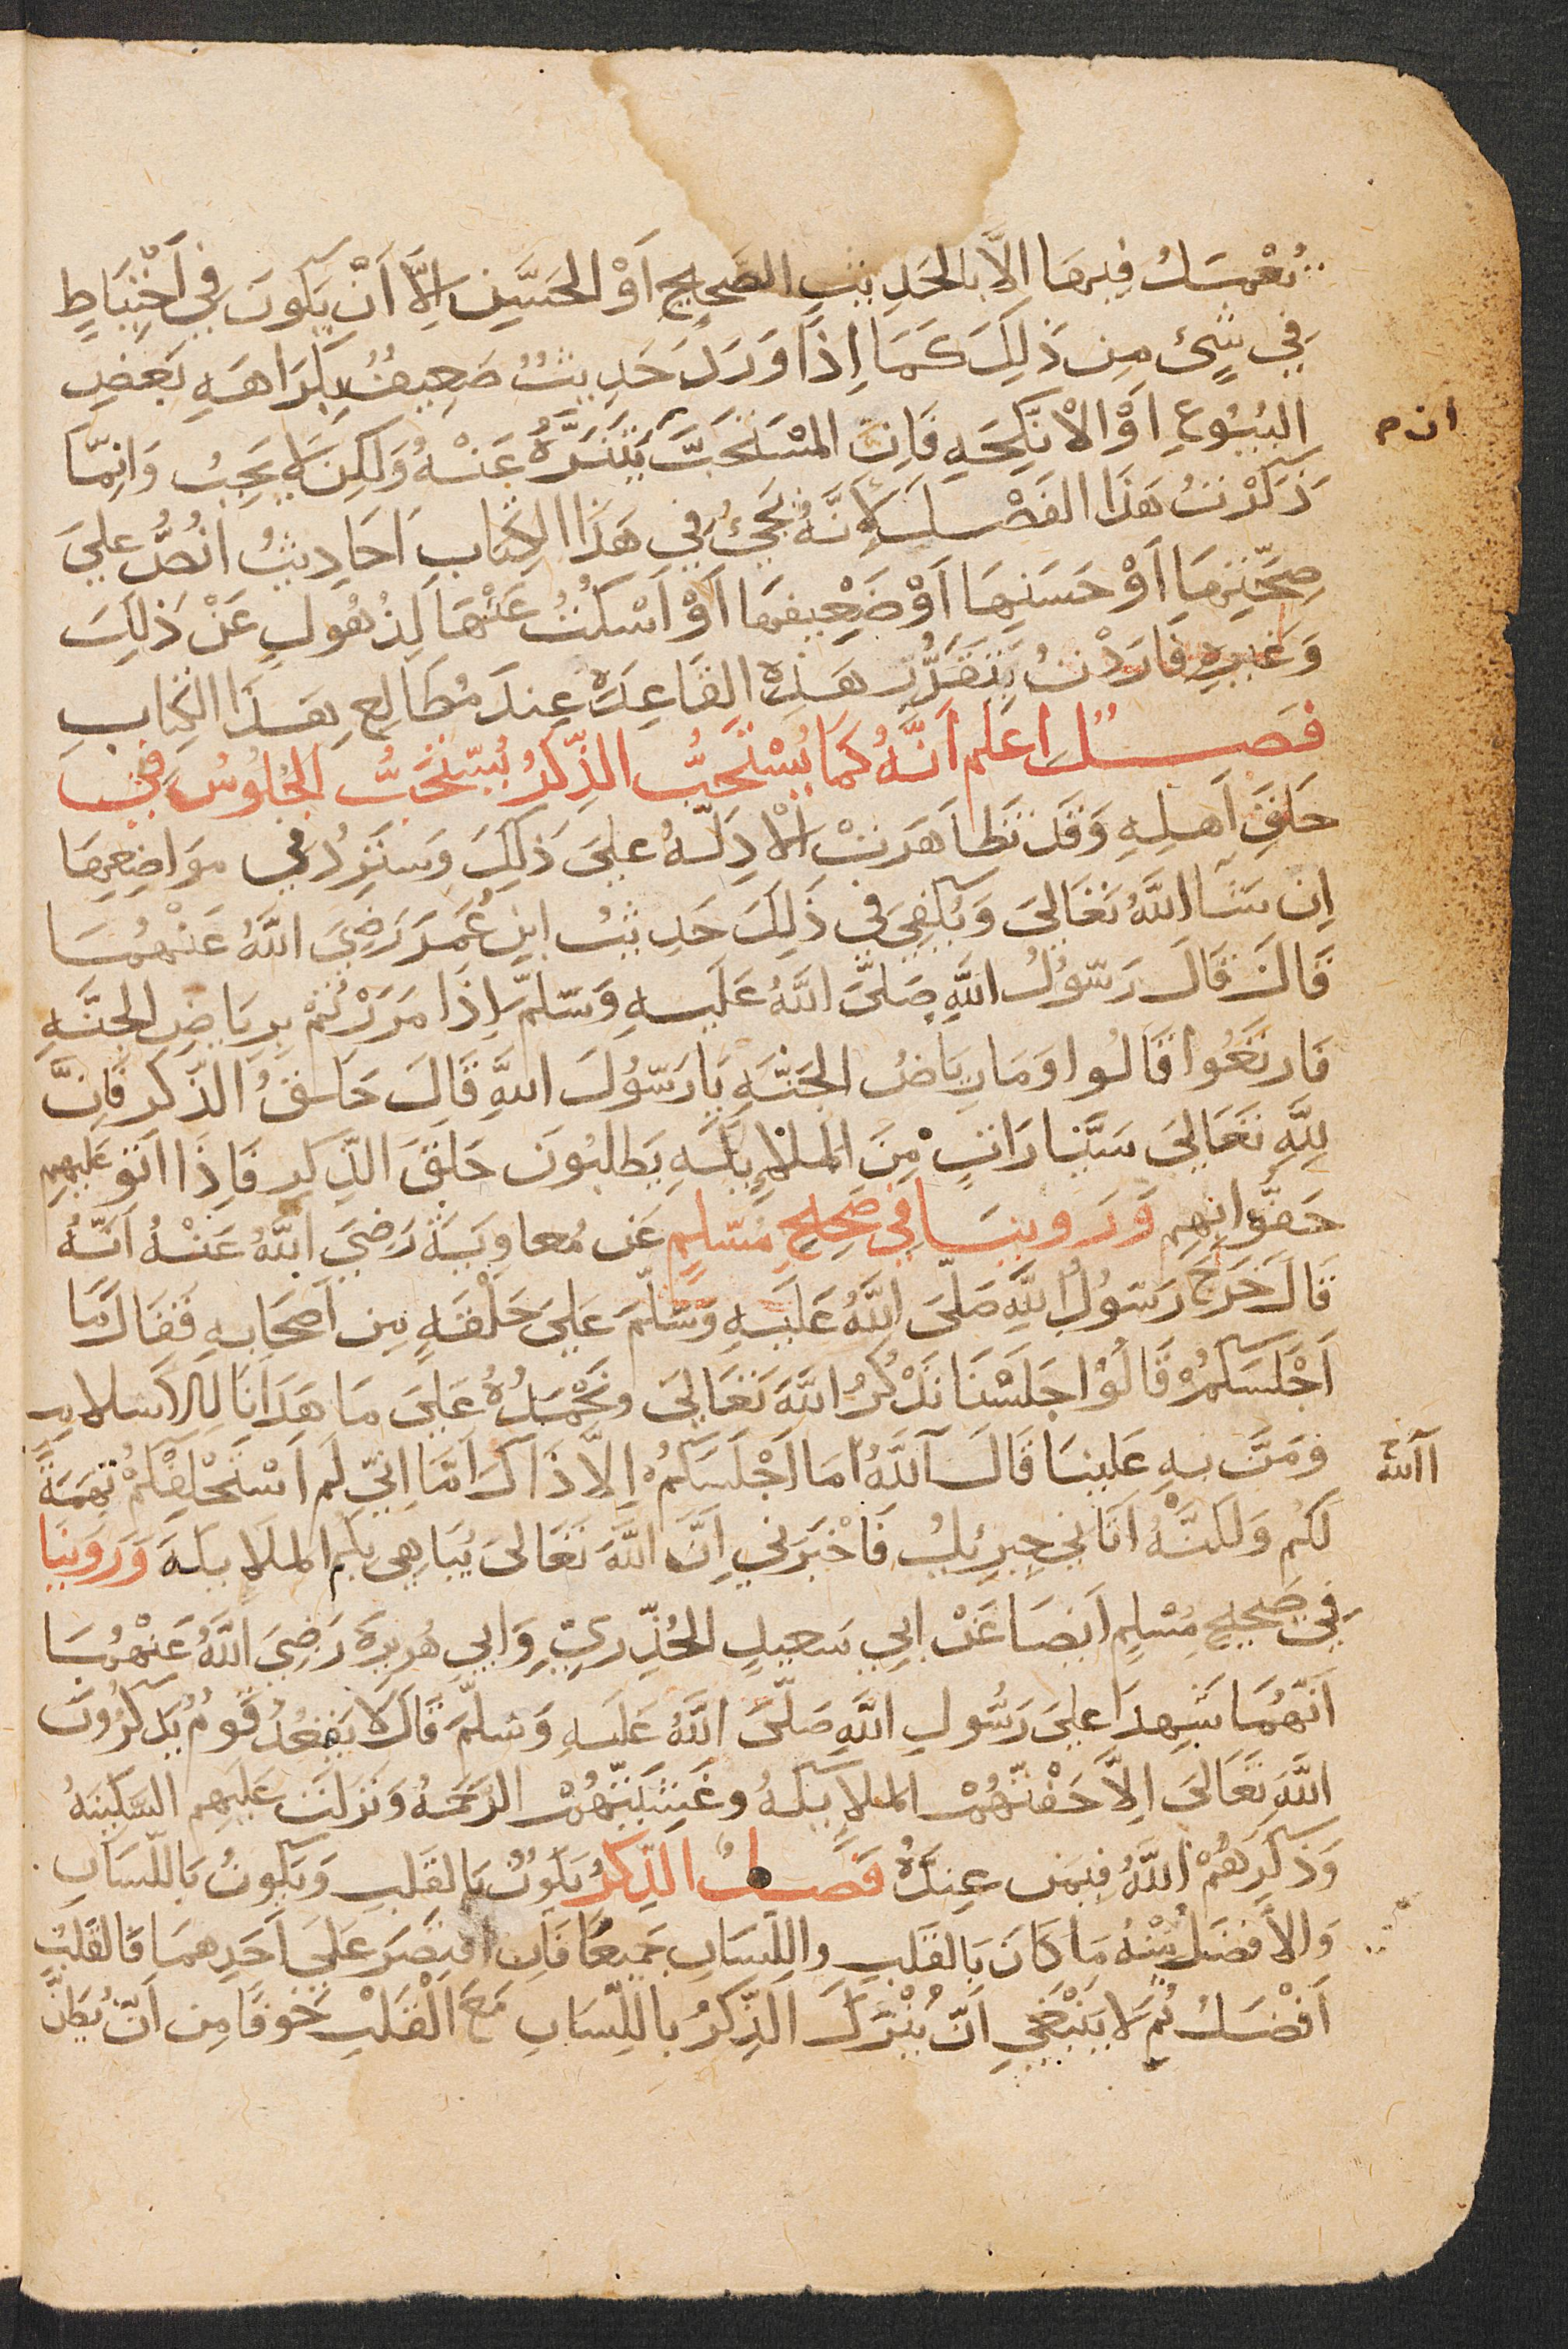 يُعْمَل فِيهَا الَّا بالحَدِيثِ الصَّحِيحِ اَوْ الحَسَنِ اِلَّا اَنْ يَكُونَ فِي اَحْتِيَاطٍ
فِي شيْئ مِن ذَلِكَ كَمَا اِذَا وَرَدَ حَدِيثٌ ضَعِيفٌ بِكَرَاهَةِ بَعْضِ
البُيُوعِ اَوْ الْانكِحَةِ فَاِنَّ المُسْتَحَبَّ يَتَنَزَّهُ عَنْهُ وَلَكِن لَا يَجِبُ وَانِمَّا
ان م
ذَكَرْتُ هَذَا الفَصْلَ لِاَنَّهُ يَجِئُ فِي هَذَا الكِتَابِ اَحَادِيثُ انُصُّ عَلىَ
صِحَّتِهَا اَوْ حَسَنِهَا اَوْ ضَعِيفِهَا اَوْ اَسْكُتُ عَنْهَا لِذُهُولٍ عَنْ ذَلِكَ
وَغَيرِهِ فَارَدْتُ يَتَقَرَّر هَذِهِ القَاعِدَة عِندَ مُطَالِعِ هَذَا الكِتابِ
فَصــل اعلَم اَنَّهُ كَمَا يُسْتَحَبُّ الذِّكرُ يُسْتَحَبُّ الجُلوُسُ فِي
حَلَقِ اَهلِهِ وَقَد تَظَاهَرَتْ الْادِلَّهُ عَلىَ ذَلِكَ وَسَتَرِدُ فِي مَوَاضِعِهَا
اِن شَآ اللَّهُ تَعَالىَ وَيَكْفِي فِي ذَلِكَ حَدِيثُ ابنِ عُمَرَ رَضِيَ اللَّهُ عَنْهُمَا
قَالَ قَالَ رَسُولُ اللَّهِ صَلىَّ اللَّهُ عَلَيهِ وَسَلَّمَ اِذَا مَرَرْتُمْ بِرِيَاضِ الجَنَّهِ
فَارتَعُوا قَالُوا وَمَا رِيَاضُ الجَنَّهِ يَا رَسُولَ اللَّهِ قَالَ حَلَقُ الذِّكرِ فَاِنَّ
لِلَّهِ تَعَالىَ سَيَّارَاتٍ مِنَ الملَايِكَهِ يَطلُبُونَ حَلَقَ الذِّكرِ فَاِذَا اتَو عَلَيهِم
حَفَّوا بِهِم وَرَوينَا فِي صَحِيحِ مُسْلِمٍ عَن مُعاوِيَةَ رَضِيَ اللَّهُ عَنْهُ اَنَّهُ
قَالَ خَرَجَ رَسُولُ اللَّهِ صَلىَّ اللَّهُ عَلَيهِ وَسَلَّمَ عَلىَ حَلْقَهٍ مِن اَصحَابِهِ فَقَالَ مَا
اَجْلَسَكُمْ قَالُوْا جَلَسْنَا نَذْكُرُ اللَّهَ تَعَالىَ ونَحْمَدُهُ عَلىَ مَا هَدَانَا لِلاِسْلامِ
وَمَنَّ بِهِ عَلَينَا قَالَ آللَّهُ مَا اَجْلَسَكُمْ اِلاَّ ذَاكَ اَمَا اِنِّي لَم اَسْتَحْلِفْكُمْ تُهَمَةً
اآللهِ
لَكُم وَلَكِنَّهُ اَتَانِي جِبرِيلُ فَاَخْبَرَنِي اَنَّ اللَّهَ تَعَالىَ يُبَاهِي بِكُم الملَايِكَهَ وَرَوَينَا
فِي صَحِيحِ مُسْلِمٍ اَيضَا عَنْ ابِي سَعِيدٍ الخُدْرِيِّ وَابِي هُرَيرَةَ رَضِيَ اللَّهُ عَنْهُمَا
اَنَّهُمَا شَهِدَا عَلىَ رَسُولِ اللَّهِ صَلىَّ اللَّهُ عَلَيهِ وَسَلَّمَ قَالَ لَا يَقعُدُ قَومٌ يَذكُرُونَ
اللَّهَ تَعَالىَ اِلاَّ حَفَّتْهُمُ الملَايِكَهُ وغَشِيَتْهُمُ الرَحَمهُ وَنَزَلَت عَلَيهِم السَكِينَهُ
وَذَكَرَهُمْ اللَّهُ فِيمَن عِندَهُ فَصــلٌ الذِّكرُ يَكُونُ بَالقَلبِ وَيَكُونُ بَاللّسَانِ
وَالاَفضَلُ مِنْهُ مَا كَانَ بَالقَلبِ واللِسَانِ جَمِيعًا فَاِن اقتَصَرَ عَلىَ اَحَدِهمَا فَالقَلبُ
اَفْضَلُ ثُمَ لَا يَنْبَغِي اَنْ يُتْرَكَ الذِّكرُ باللّسَانِ مَعَ الْقَلْبِ خَوفًا مِن اَنْ يُظَنَّ